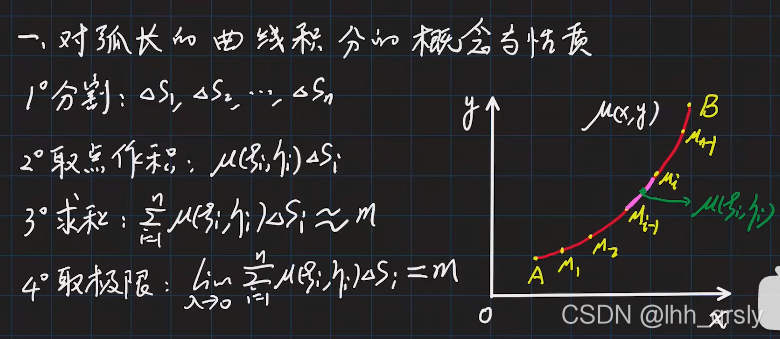 一、对弧长的曲线积分的概念与性质
1° 分割：△S₁, △S₂, ⋯, △Sₙ
2° 取点作积：μ(ξᵢ,ηᵢ)△Sᵢ
3° 求和：∑ᵢ₌₁ⁿ μ(ξᵢ,ηᵢ)△Sᵢ ≈ m
4° 取极限：lim_{λ→0} ∑ᵢ₌₁ⁿ μ(ξᵢ,ηᵢ)△Sᵢ = m
y
μ(x,y)
B
Mₙ₋₁
Mᵢ
Mᵢ₋₁
μ(ξᵢ,ηᵢ)
M₂
M₁
A
0
x
CSDN @lhh_qrsly